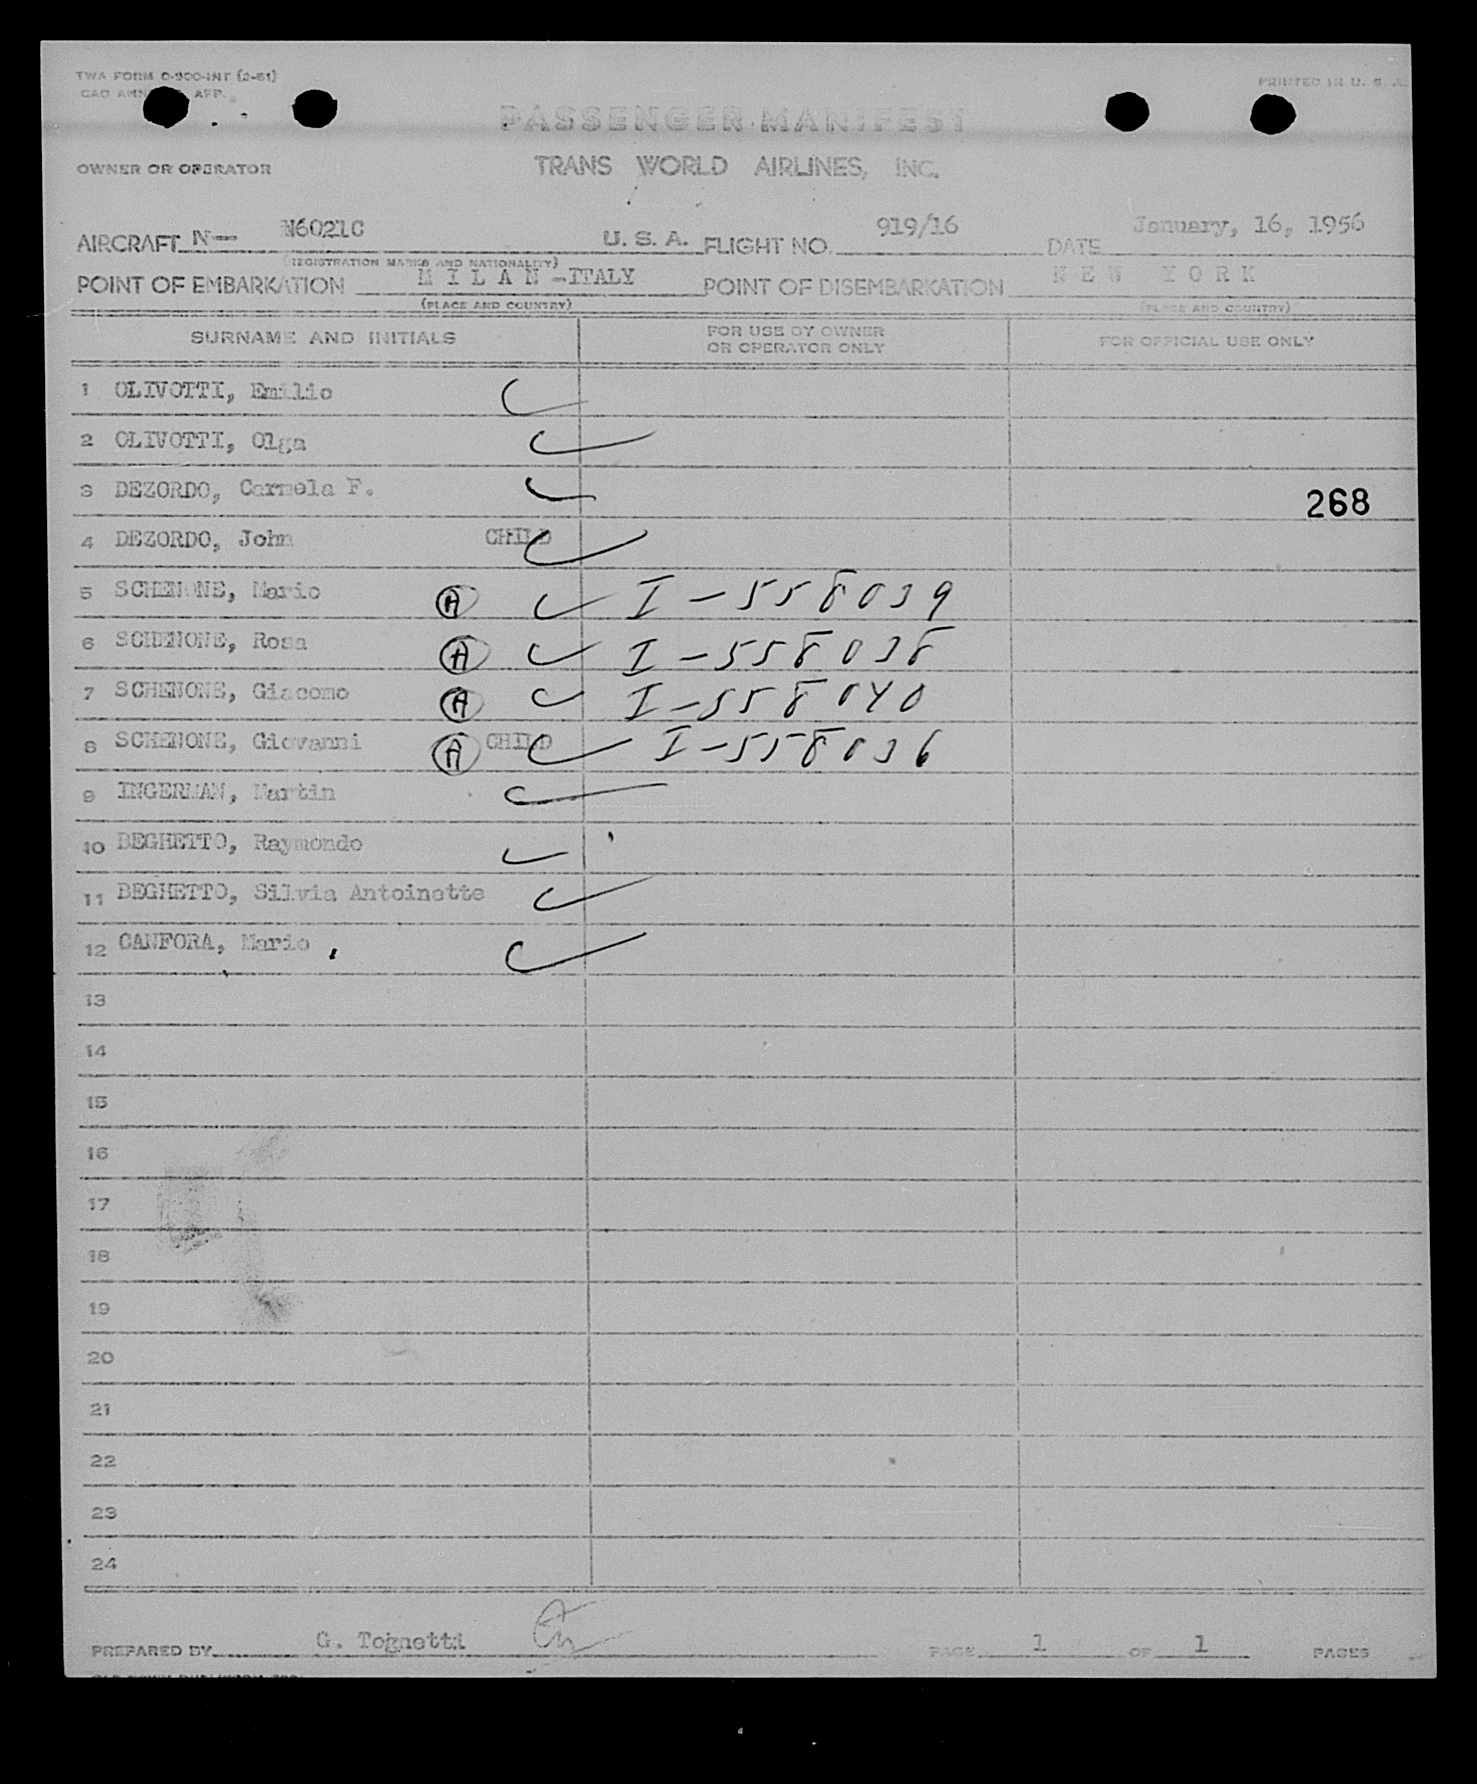 TWA FORM O-900-INT (2-51)
PRINTED IN U. S. A.
CAO ANN APP.
PASSENGER MANIFEST
OWNER OR OPERATOR TRANS WORLD AIRLINES, INC.
AIRCRAFT N— N6021C U. S. A. FLIGHT NO. 919/16 DATE January, 16, 1956
(REGISTRATION MARKS AND NATIONALITY)
POINT OF EMBARKATION M I L A N -ITALY POINT OF DISEMBARKATION N E W Y O R K
(PLACE AND COUNTRY) (PLACE AND COUNTRY)
SURNAME AND INITIALS FOR USE BY OWNER OR OPERATOR ONLY FOR OFFICIAL USE ONLY
1 OLIVOTTI, Emilio
2 OLIVOTTI, Olga
3 DEZORDO, Carmela F. 268
4 DEZORDO, John CHILD
5 SCHENONE, Mario A I-558039
6 SCHENONE, Rosa A I-558038
7 SCHENONE, Giacomo A I-558040
8 SCHENONE, Giovanni A CHILD I-558036
9 INGERMAN, Martin
10 BEGHETTO, Raymondo
11 BEGHETTO, Silvia Antoinette
12 CANFORA, Mario
13
14
15
16
17
18
19
20
21
22
23
24
PREPARED BY G. Tognetti PAGE 1 OF 1 PAGES